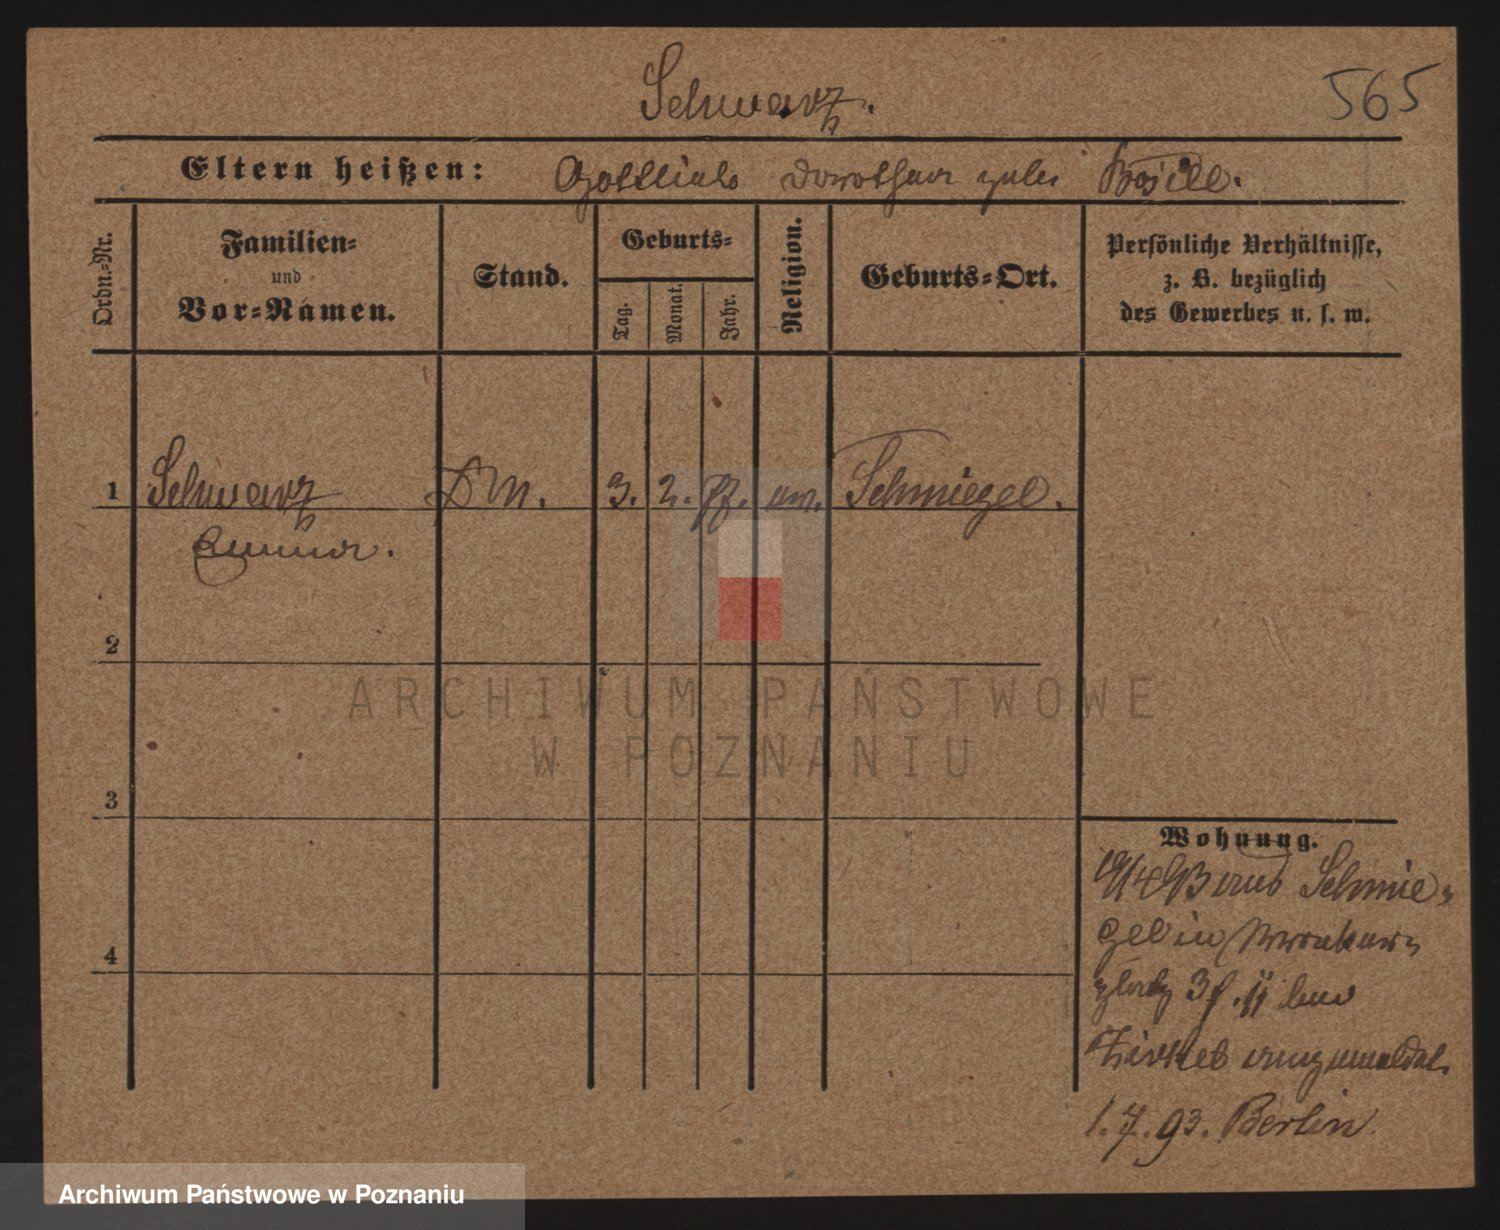 Schwarz.
565
Eltern heißen: Gottlieb Dorothea geb.
Ordn.-Nr.
Familien-
und
Vor-Namen.
Stand.
Geburts-
Tag.
Monat.
Jahr.
Religion.
Geburts-Ort.
Persönliche Verhältnisse,
z. B. bezüglich
des Gewerbes u. s. w.
1
Schwarz
3. 2. ev. Schmiegel.
Emma.
2
ARCHIWUM PAŃSTWOWE
W POZNANIU
3
Wohnung.
aus Schmie-
gel in
platz bei
Zirkel angemeldet.
4
1. 7. 93. Berlin
Archiwum Państwowe w Poznaniu